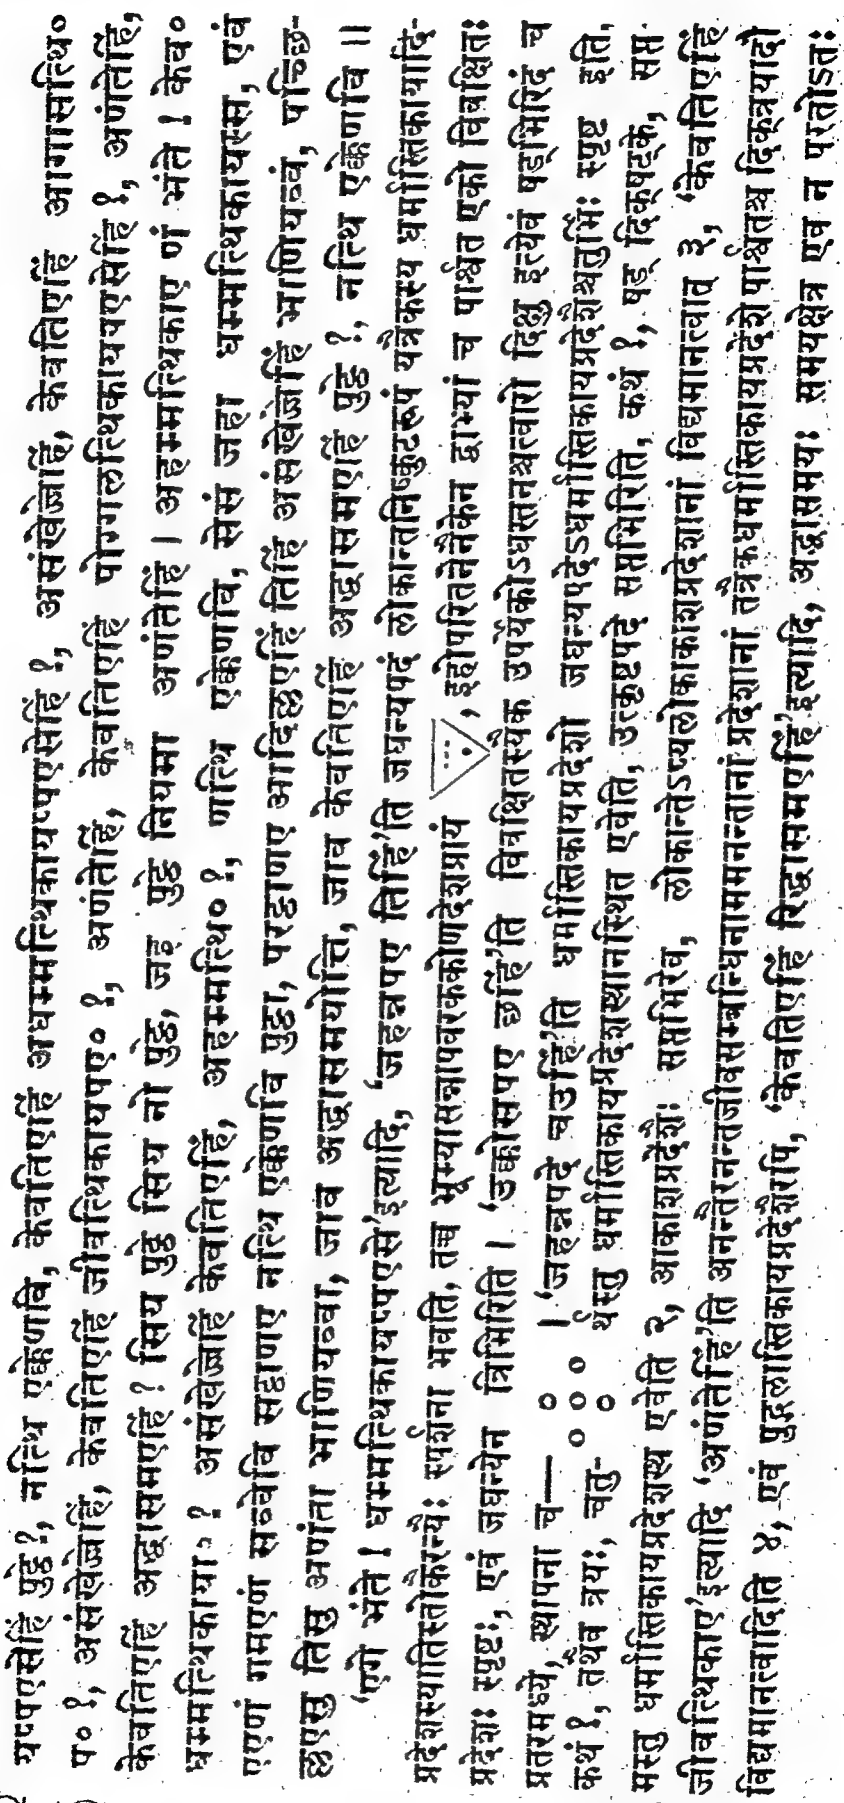 यप्पएसेहिं पुट्ठे?, नत्थि एक्केणवि, केवतिएहिं अधम्मत्थिकायप्पएसेहिं?, असंखेज्जेहिं, केवतिएहिं आगासत्थि०
प०?, असंखेज्जेहिं, केवतिएहिं जीवत्थिकायपए०?, अणंतेहिं, केवतिएहिं पोग्गलत्थिकायपएसेहिं?, अणंतेहिं,
केवतिएहिं अद्धासमएहिं? सिय पुट्ठे सिय नो पुट्ठे, जइ पुट्ठे नियमा अणंतेहिं । अहम्मत्थिकाए णं भंते ! केव०
धम्मत्थिकाय०? असंखेज्जेहिं केवतिएहिं, अहम्मत्थि०?, णत्थि एक्केणवि, सेसं जहा धम्मत्थिकायस्स, एवं
एएणं गमएणं सव्वेवि सट्ठाणए नत्थि एक्केणवि पुट्ठा, परट्ठाणए आदिल्लएहिं तिहिं असंखेज्जेहिं भाणियव्वं, पच्छि-
ल्लएसु तिसु अणंता भाणियव्वा, जाव अद्धासमयोत्ति, जाव केवतिएहिं अद्धासमएहिं पुट्ठे?, नत्थि एक्केणवि ॥
'एगे भंते ! धम्मत्थिकायप्पएसे'इत्यादि, 'जहन्नपए तिहिं'ति जघन्यपदं लोकान्तनिष्कुटरूपं यत्रैकस्य धर्मास्तिकायादि-
प्रदेशस्यातिस्तोकैरन्यैः स्पर्शना भवति, तच्च भूम्यासन्नापवरककोणदेशप्रायं , इहोपरितनेनैकेन द्वाभ्यां च पार्श्वत एको विवक्षितः
प्रदेशः स्पृष्टः, एवं जघन्येन त्रिभिरिति । 'उक्कोसपए छहिं'ति विवक्षितस्यैक उपर्येकोऽधस्तनश्चत्वारो दिक्षु इत्येवं षड्भिरिदं च
प्रतरमध्ये, स्थापना च— । 'जहन्नपदे चउहिं'ति धर्मास्तिकायप्रदेशो जघन्यपदेऽधर्मास्तिकायप्रदेशैश्चतुर्भिः स्पृष्ट इति,
कथं?, तथैव त्रयः, चतु- र्थस्तु धर्मास्तिकायप्रदेशस्थानस्थित एवेति, उत्कृष्टपदे सप्तभिरिति, कथं?, षड् दिक्षट्के, सप्त-
मस्तु धर्मास्तिकायप्रदेशस्थ एवेति २, आकाशप्रदेशैः सप्तभिरेव, लोकान्तेऽप्यलोकाकाशप्रदेशानां विद्यमानत्वात् ३, 'केवतिएहिं
जीवत्थिकाए'इत्यादि 'अणंतेहिं'ति अनन्तैरनन्तजीवसम्बन्धिनामनन्तानां प्रदेशानां तत्रैकधर्मास्तिकायप्रदेशे पार्श्वतश्च दिक्त्रयादौ
विद्यमानत्वादिति ४, एवं पुद्गलास्तिकायप्रदेशैरपि, 'केवतिएहिं अद्धासमएहिं'इत्यादि, अद्धासमयः समयक्षेत्र एव न परतोऽतः